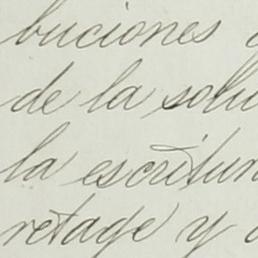 buciones
de la solu
la escritur
retage y